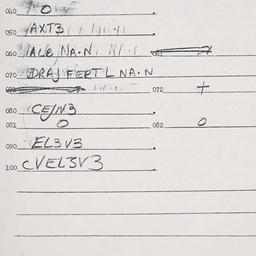 040 O
050 1AXT3
060 1ALB/NA·N 061
070 DRAJ FERTL NA·N
071 072 +
080 CE/N3
081 O 082 O
090 EL3V3
100 CVEL3V3